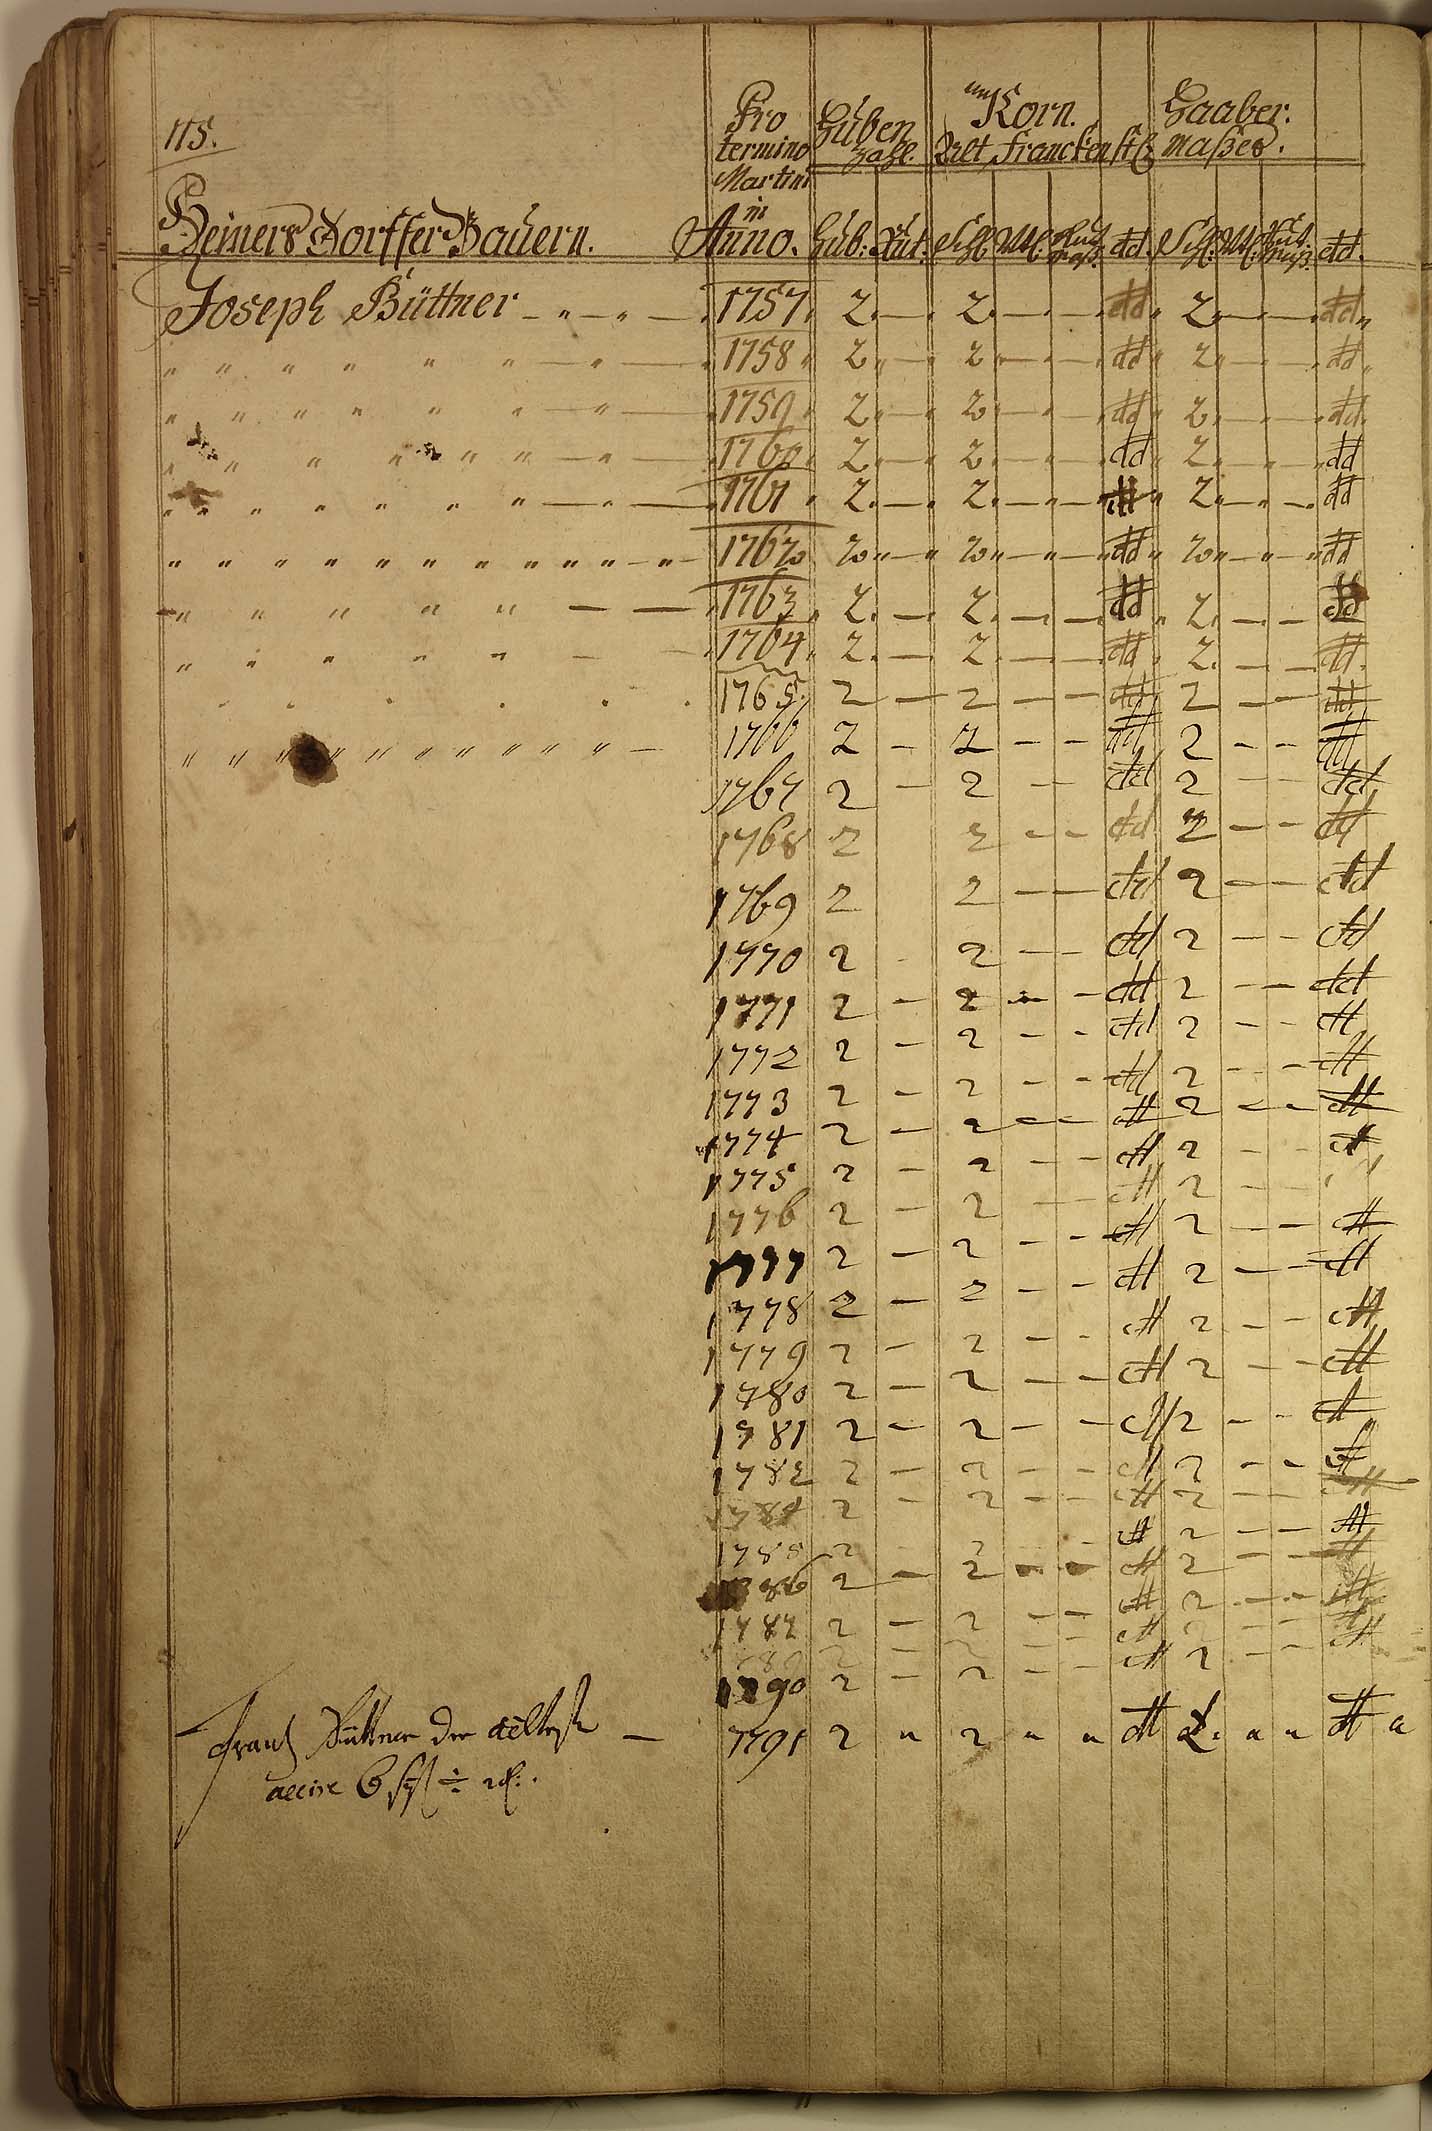 115.
Pro termino Martini in Anno.
Huben Zahl.
Korn.
Haaber.
Alt Franckenst: Maßes.
Heinersdorffer Bauern.
Hub: Rut: Schl: Mtl: dd. Schl: Mtl: dd.
Joseph Büttner - " - " - 1757. 2. — 2. — " — dd " 2. — " — dd "
" " " " " " — " — 1758 " 2 " — 2 " — " — dd " 2 " — " — dd "
" " " " " " — " — 1759 " 2 " — 2 " — " — dd " 2 " — " — dd.
" " " " " " " — " — 1760 2 " — 2 " — " — dd " 2 " — " — dd
" " " " " " " — " — 1761 " 2. — 2. — " — dd " 2 " — " — dd
" " " " " " " " " " " " - " - 1762 2 " — " 2 " — " — dd " 2 " — " — dd
" " " " " — — 1763 2. — 2. — — dd " 2. — — dd
" " " " " — — 1764 2. — 2. — — dd " 2. — — dd.
1765. 2 — 2 — — dd 2 — — dd
" " " " " " " " " " " — 1766 2 — 2 — — dd 2 — — dd
1767 2 — 2 — dd 2 — — dd
1768 2 2 — — dd 2 — — dd
1769 2 2 — — dd 2 — — dd
1770 2 - 2 — — dd 2 — — dd
1771 2 — 2 — — dd 2 — — dd
1772 2 — 2 — — dd 2 — — dd
1773 2 — 2 — — dd 2 — — dd
1774 2 — 2 — — dd 2 — — dd
1775 2 — 2 — — dd 2 — — dd
1776 2 — 2 — — dd 2 — —
1777 2 — 2 — — dd 2 — — dd
1778 2 — 2 — — dd 2 — — dd
1779 2 — 2 — — dd 2 — — dd
1780 2 — 2 — — dd 2 — — dd
1781 2 — 2 — — dd 2 — — dd
1782 2 — 2 — — dd 2 — — dd
1784 2 — 2 — — dd 2 — — dd
1785 2 — 2 dd 2 — — dd
1786 2 — 2 — — dd 2 — — dd
1787 2 — 2 — — dd 2 — — dd
2 — 2 — — dd 2 — — dd
1790 2 — 2 — — dd 2 — — dd
Frantz Büttner der aelteste — 1791 2 " 2 " " dd 2. " " dd